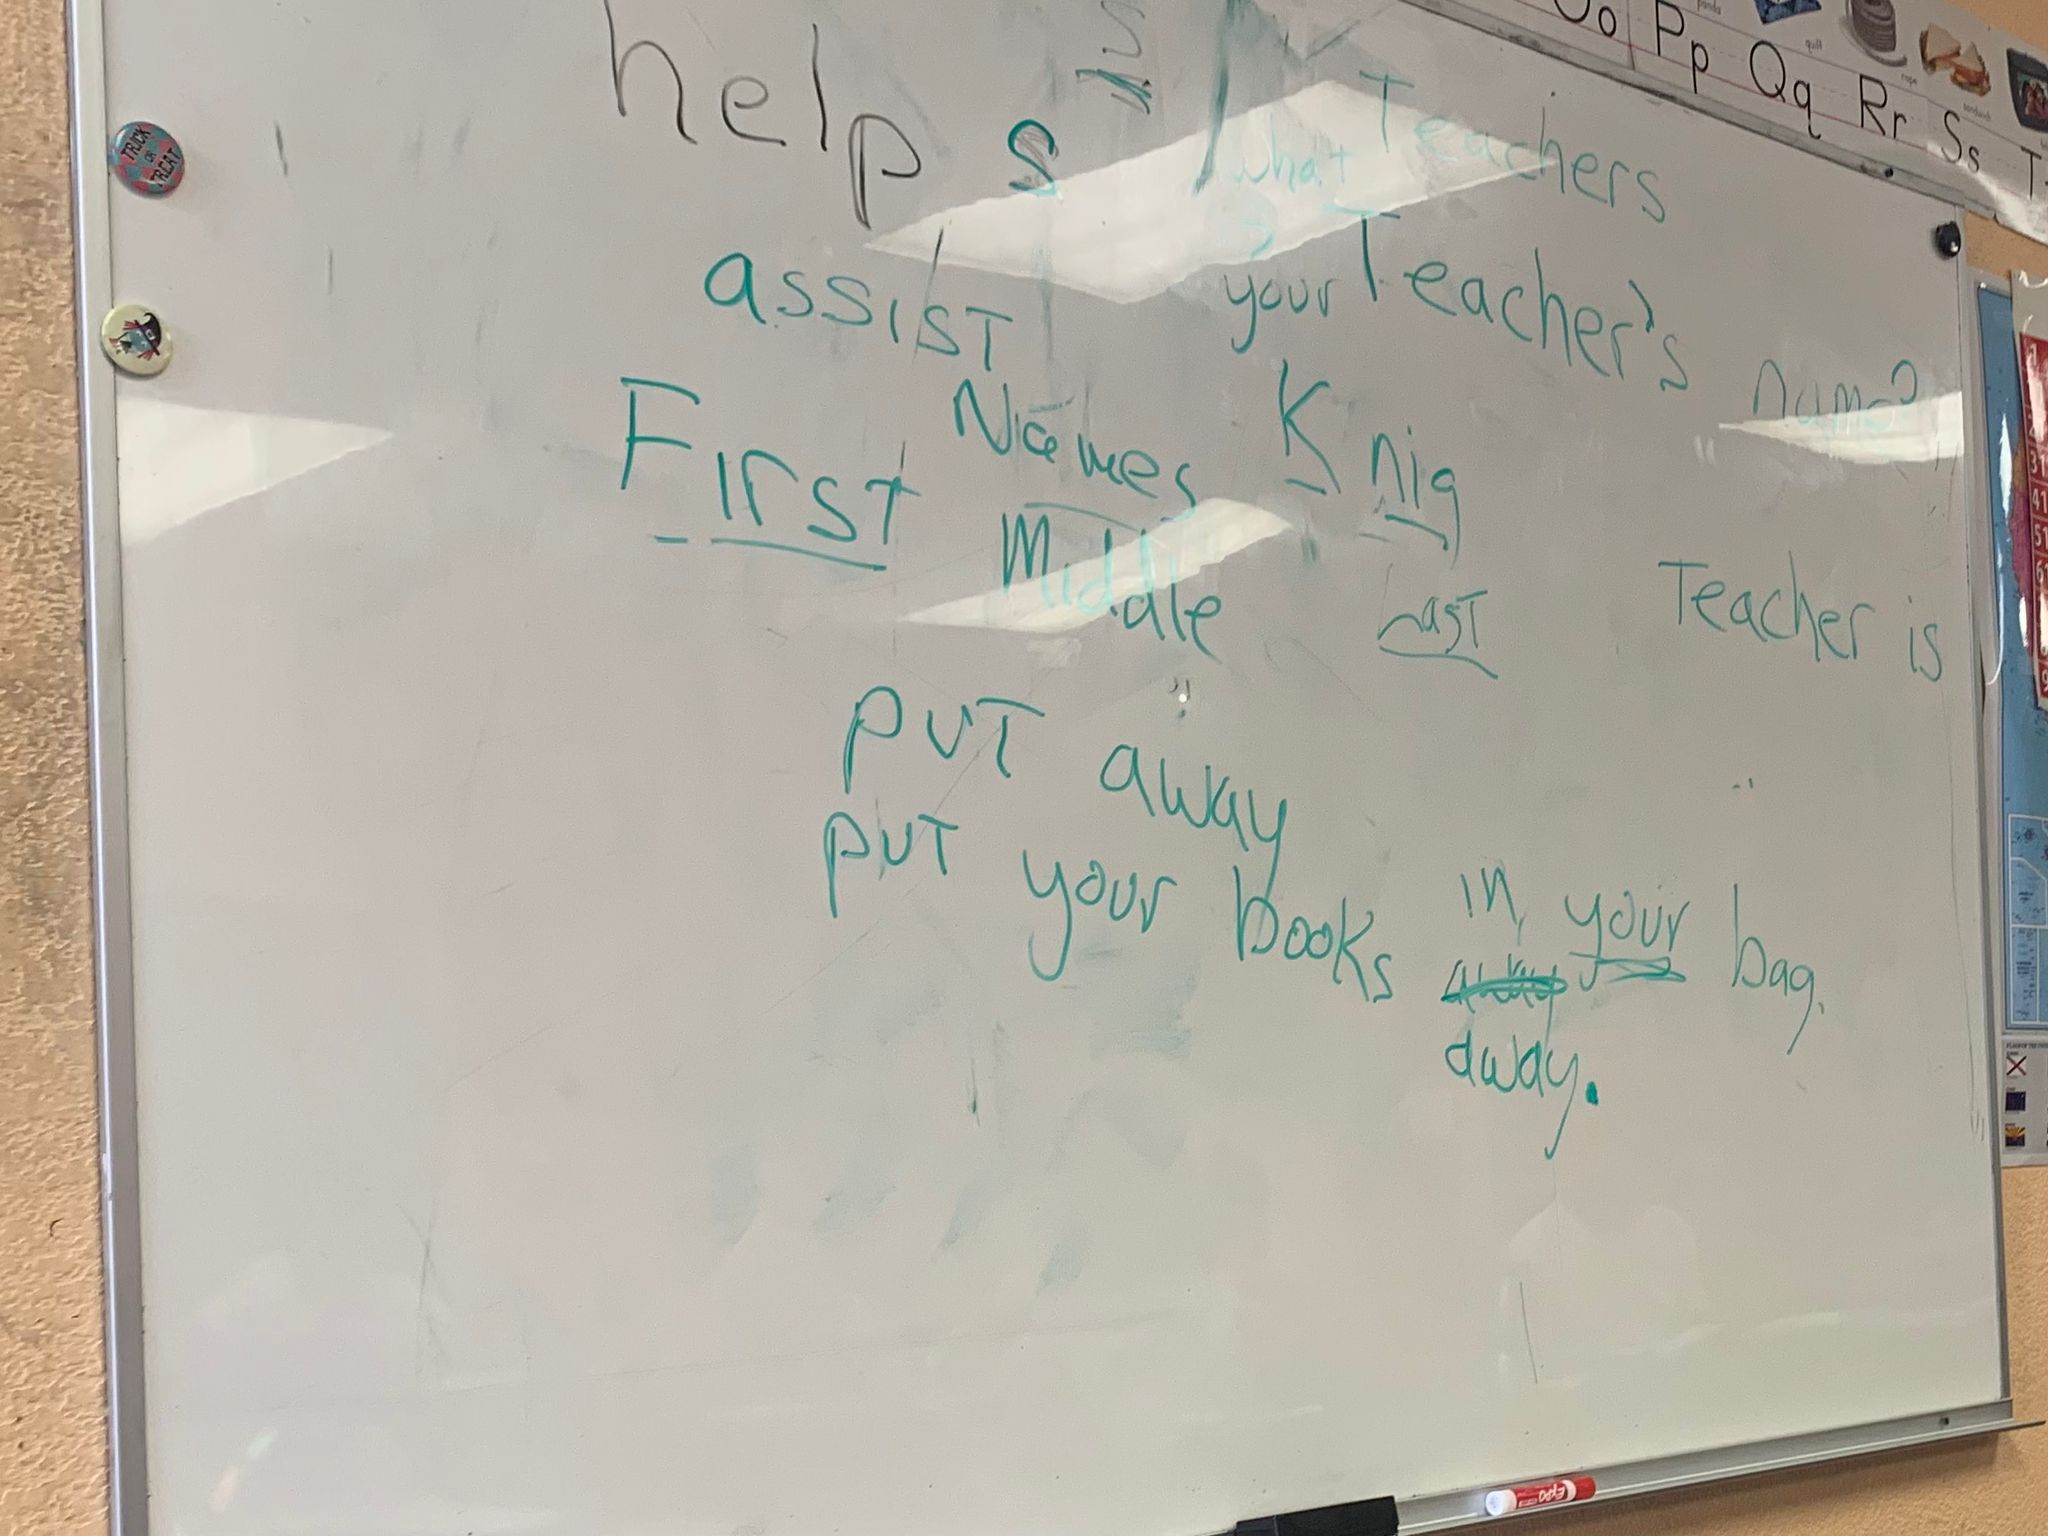 help s
assist
what Teachers
is your Teacher's name?
First Names Knig
Middle Last
Teacher is
put away
put your books in your bag.
away.
TRICK OR TREAT
Oo Pp Qq Rr Ss T
quilt
rope
sandwich
EXPO